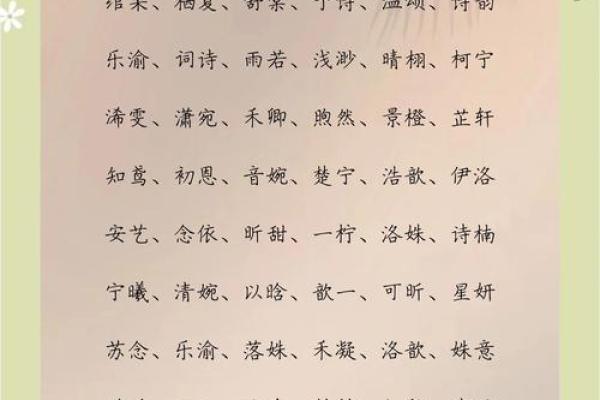 绾棠、栖夏、舒棠、予诗、温颂、诗韵
乐渝、词诗、雨若、浅渺、晴栩、柯宁
浠雯、潇宛、禾卿、煦然、景橙、芷轩
知鸢、初恩、音婉、楚宁、浩歆、伊洛
安艺、念依、昕甜、一柠、洛姝、诗楠
宁曦、清婉、以晗、歆一、可昕、星妍
苏念、乐渝、落姝、禾凝、洛歆、姝意